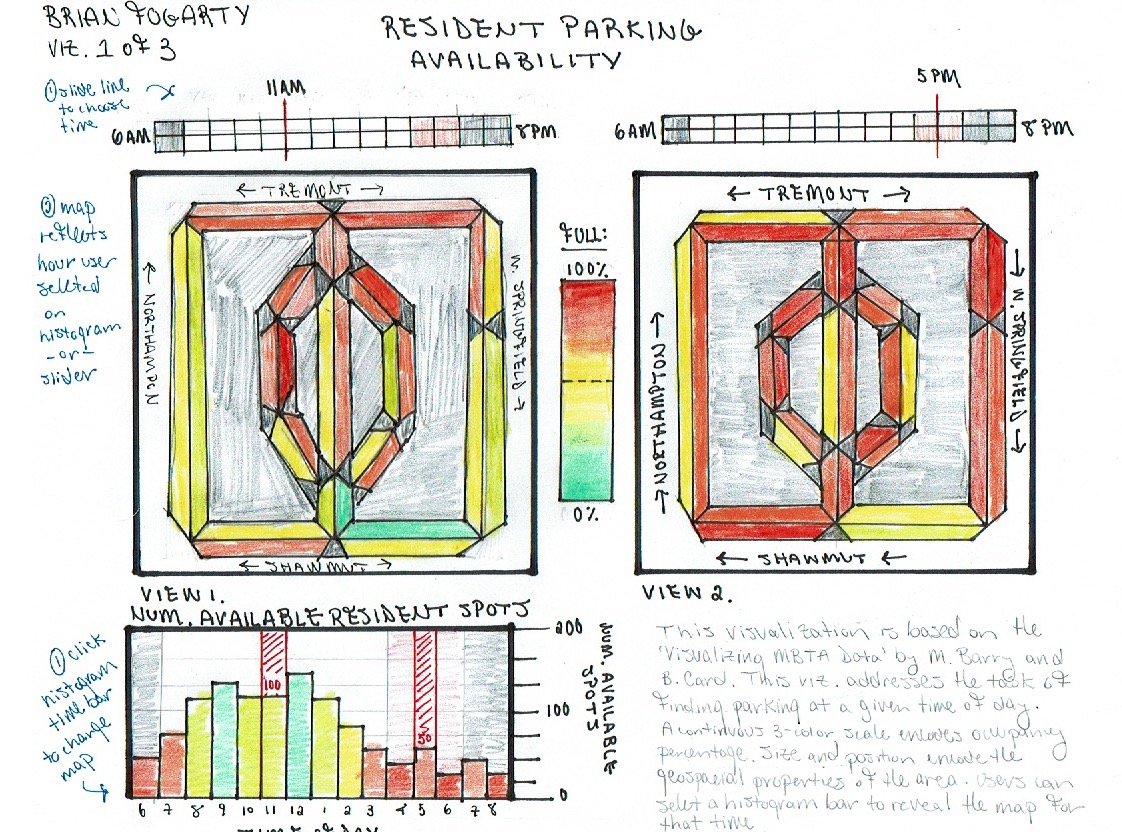 BRIAN FOGARTY
VIZ. 1 of 3
RESIDENT PARKING
AVAILABILITY
① slide line
to choose
time
11AM
6AM
8PM
5PM
6AM
8PM
② map
reflects
hour user
seleted
on
histogram
-or-
slider
← TREMONT →
← NORTHAMPTON
W. SPRINGFIELD →
← SHAWMUT →
FULL:
100%
0%
← TREMONT →
← NORTHAMPTON →
← W. SPRINGFIELD →
← SHAWMUT ←
VIEW 1.
VIEW 2.
NUM. AVAILABLE RESIDENT SPOTS
① click
histogram
time bar
to change
map
200
100
0
NUM. AVAILABLE
SPOTS
100
50
6 7 8 9 10 11 12 1 2 3 4 5 6 7 8
This visualization is based on the
'Visualizing MBTA Data' by M. Barry and
B. Card. This viz. addresses the task of
finding parking at a given time of day.
A continuous 3-color scale encodes occupancy
percentage. Size and position encode the
geospacial properties of the area. Users can
select a histogram bar to reveal the map for
that time.